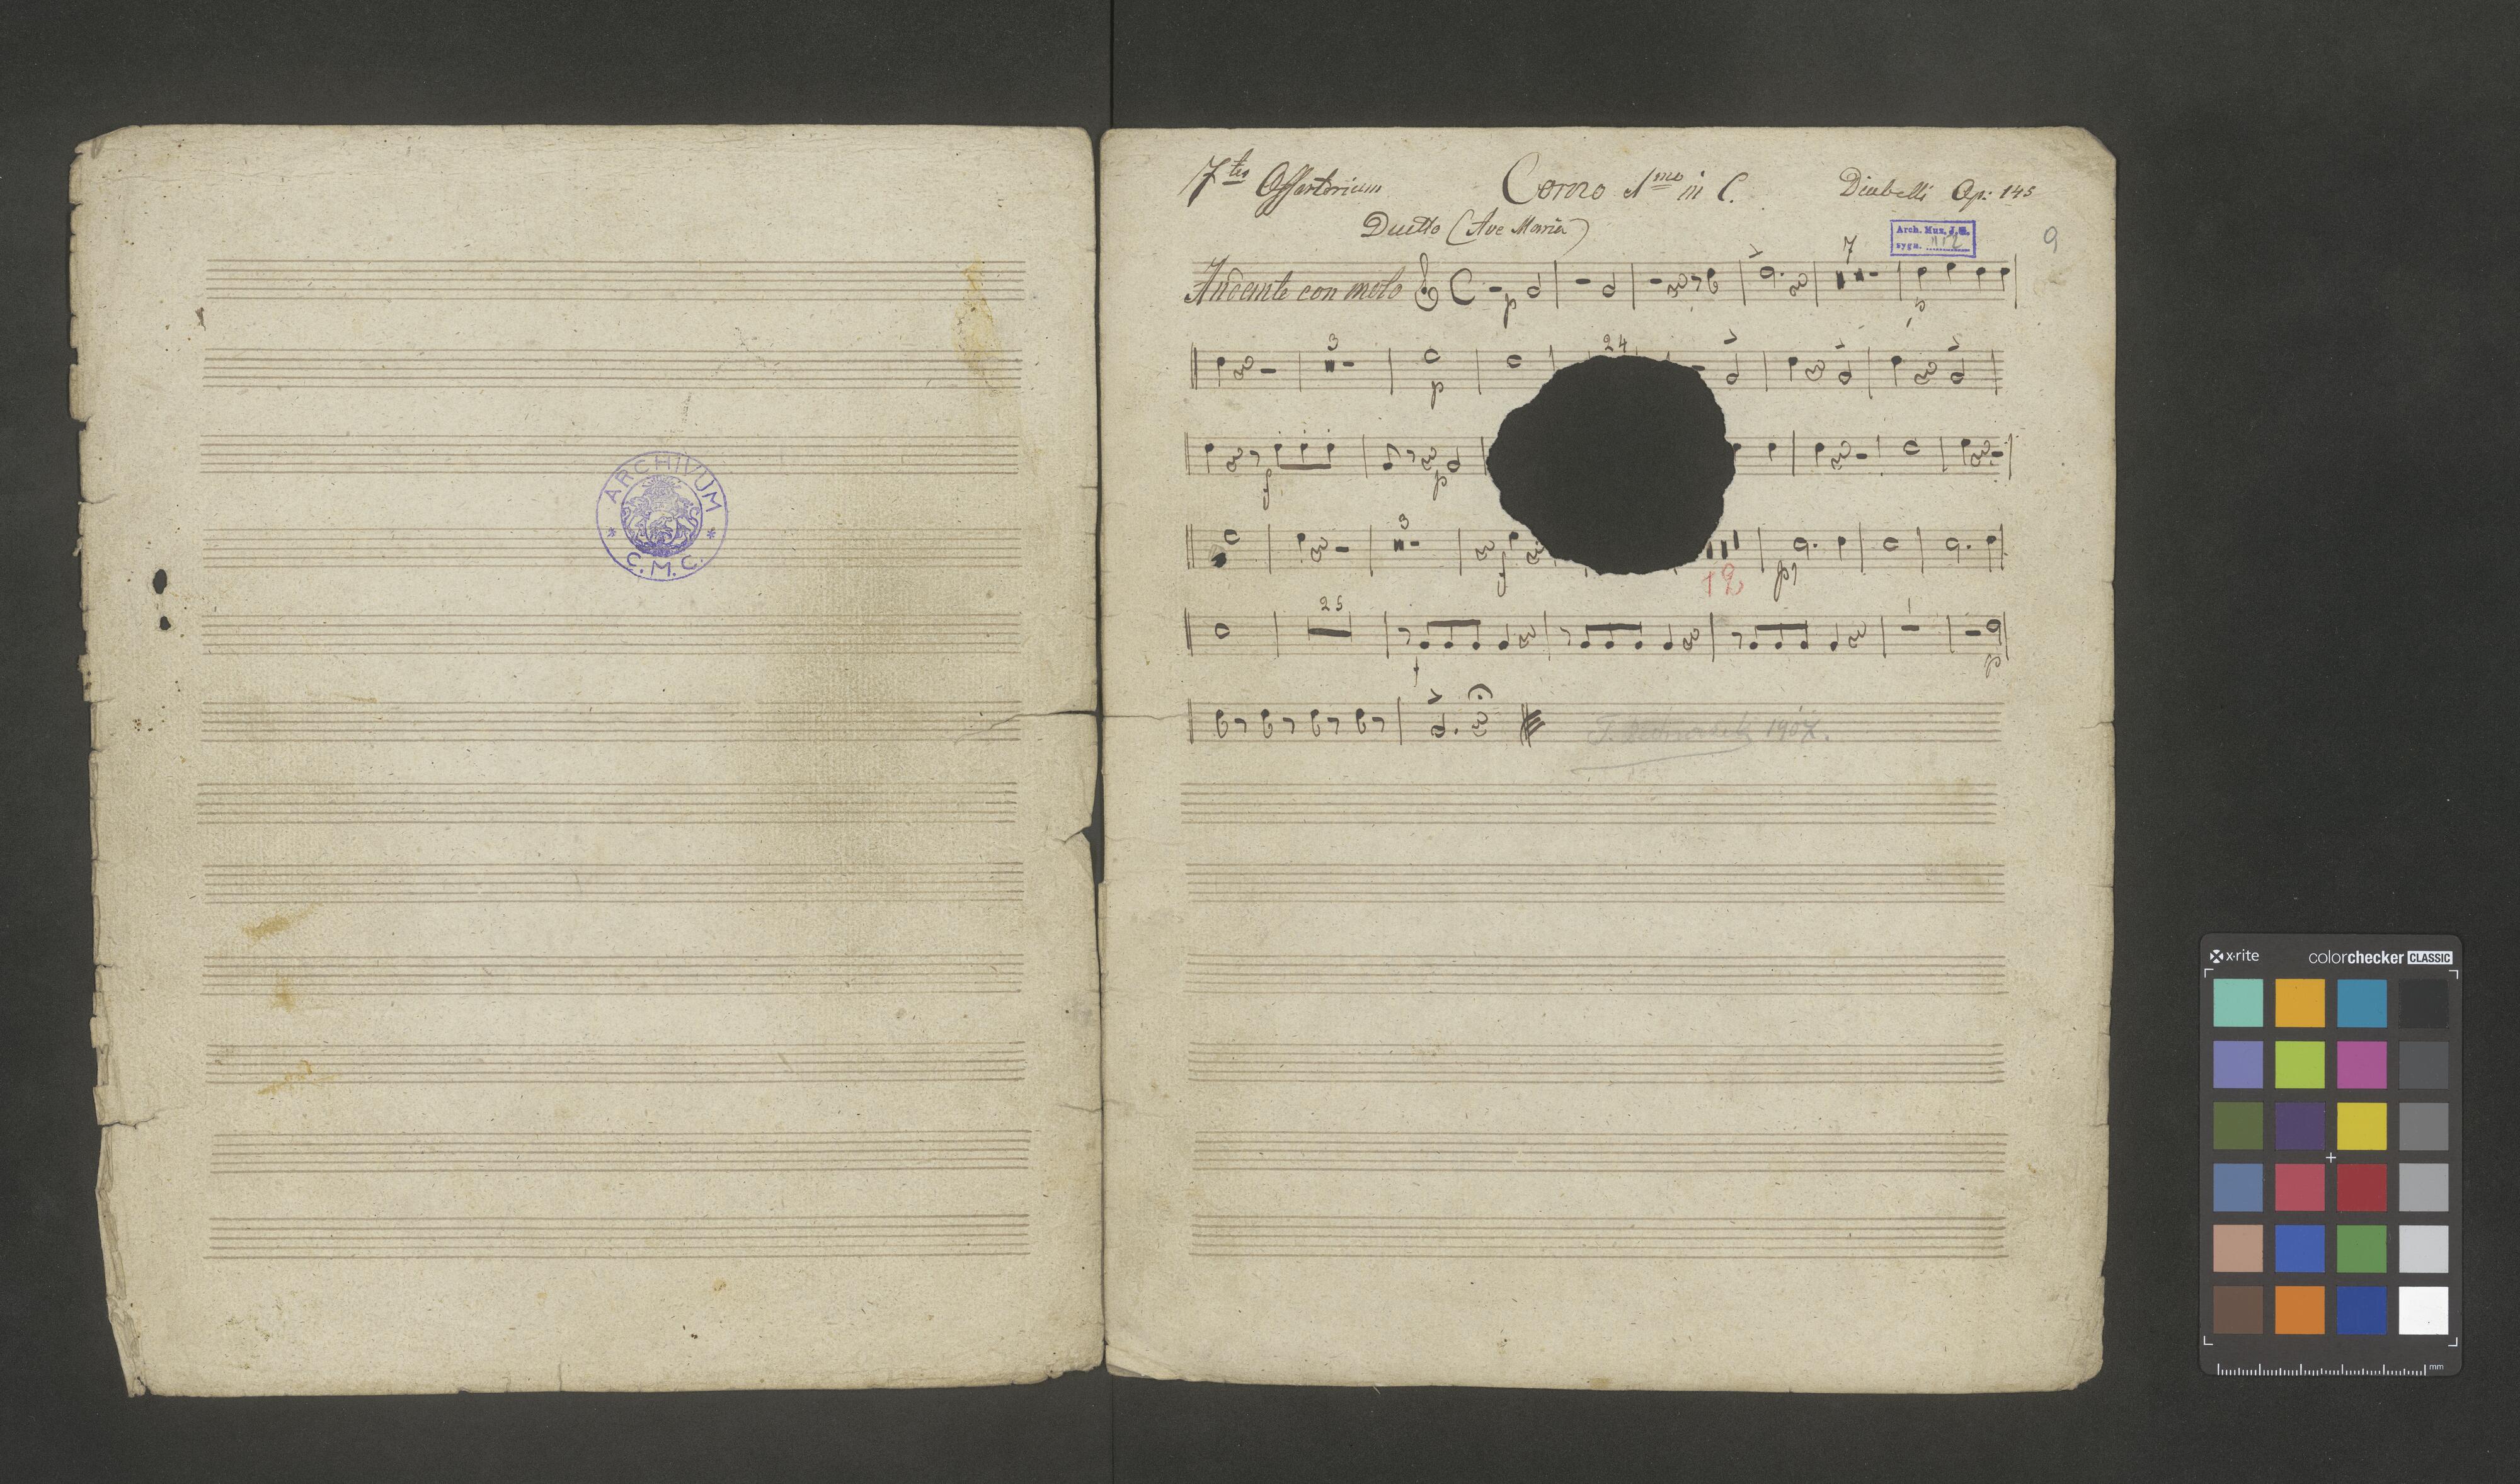 ARCHIVUM
C. M. C.
7tes Offertorium Corno 1mo in C. Diabelli Op: 145
Duetto (Ave Maria)
Arch. Muz. J. G.
sygn.
9
7
Andante con moto p
3 24
p
f p
3
f 12 p
25
f p
1907.
x·rite colorchecker CLASSIC
mm